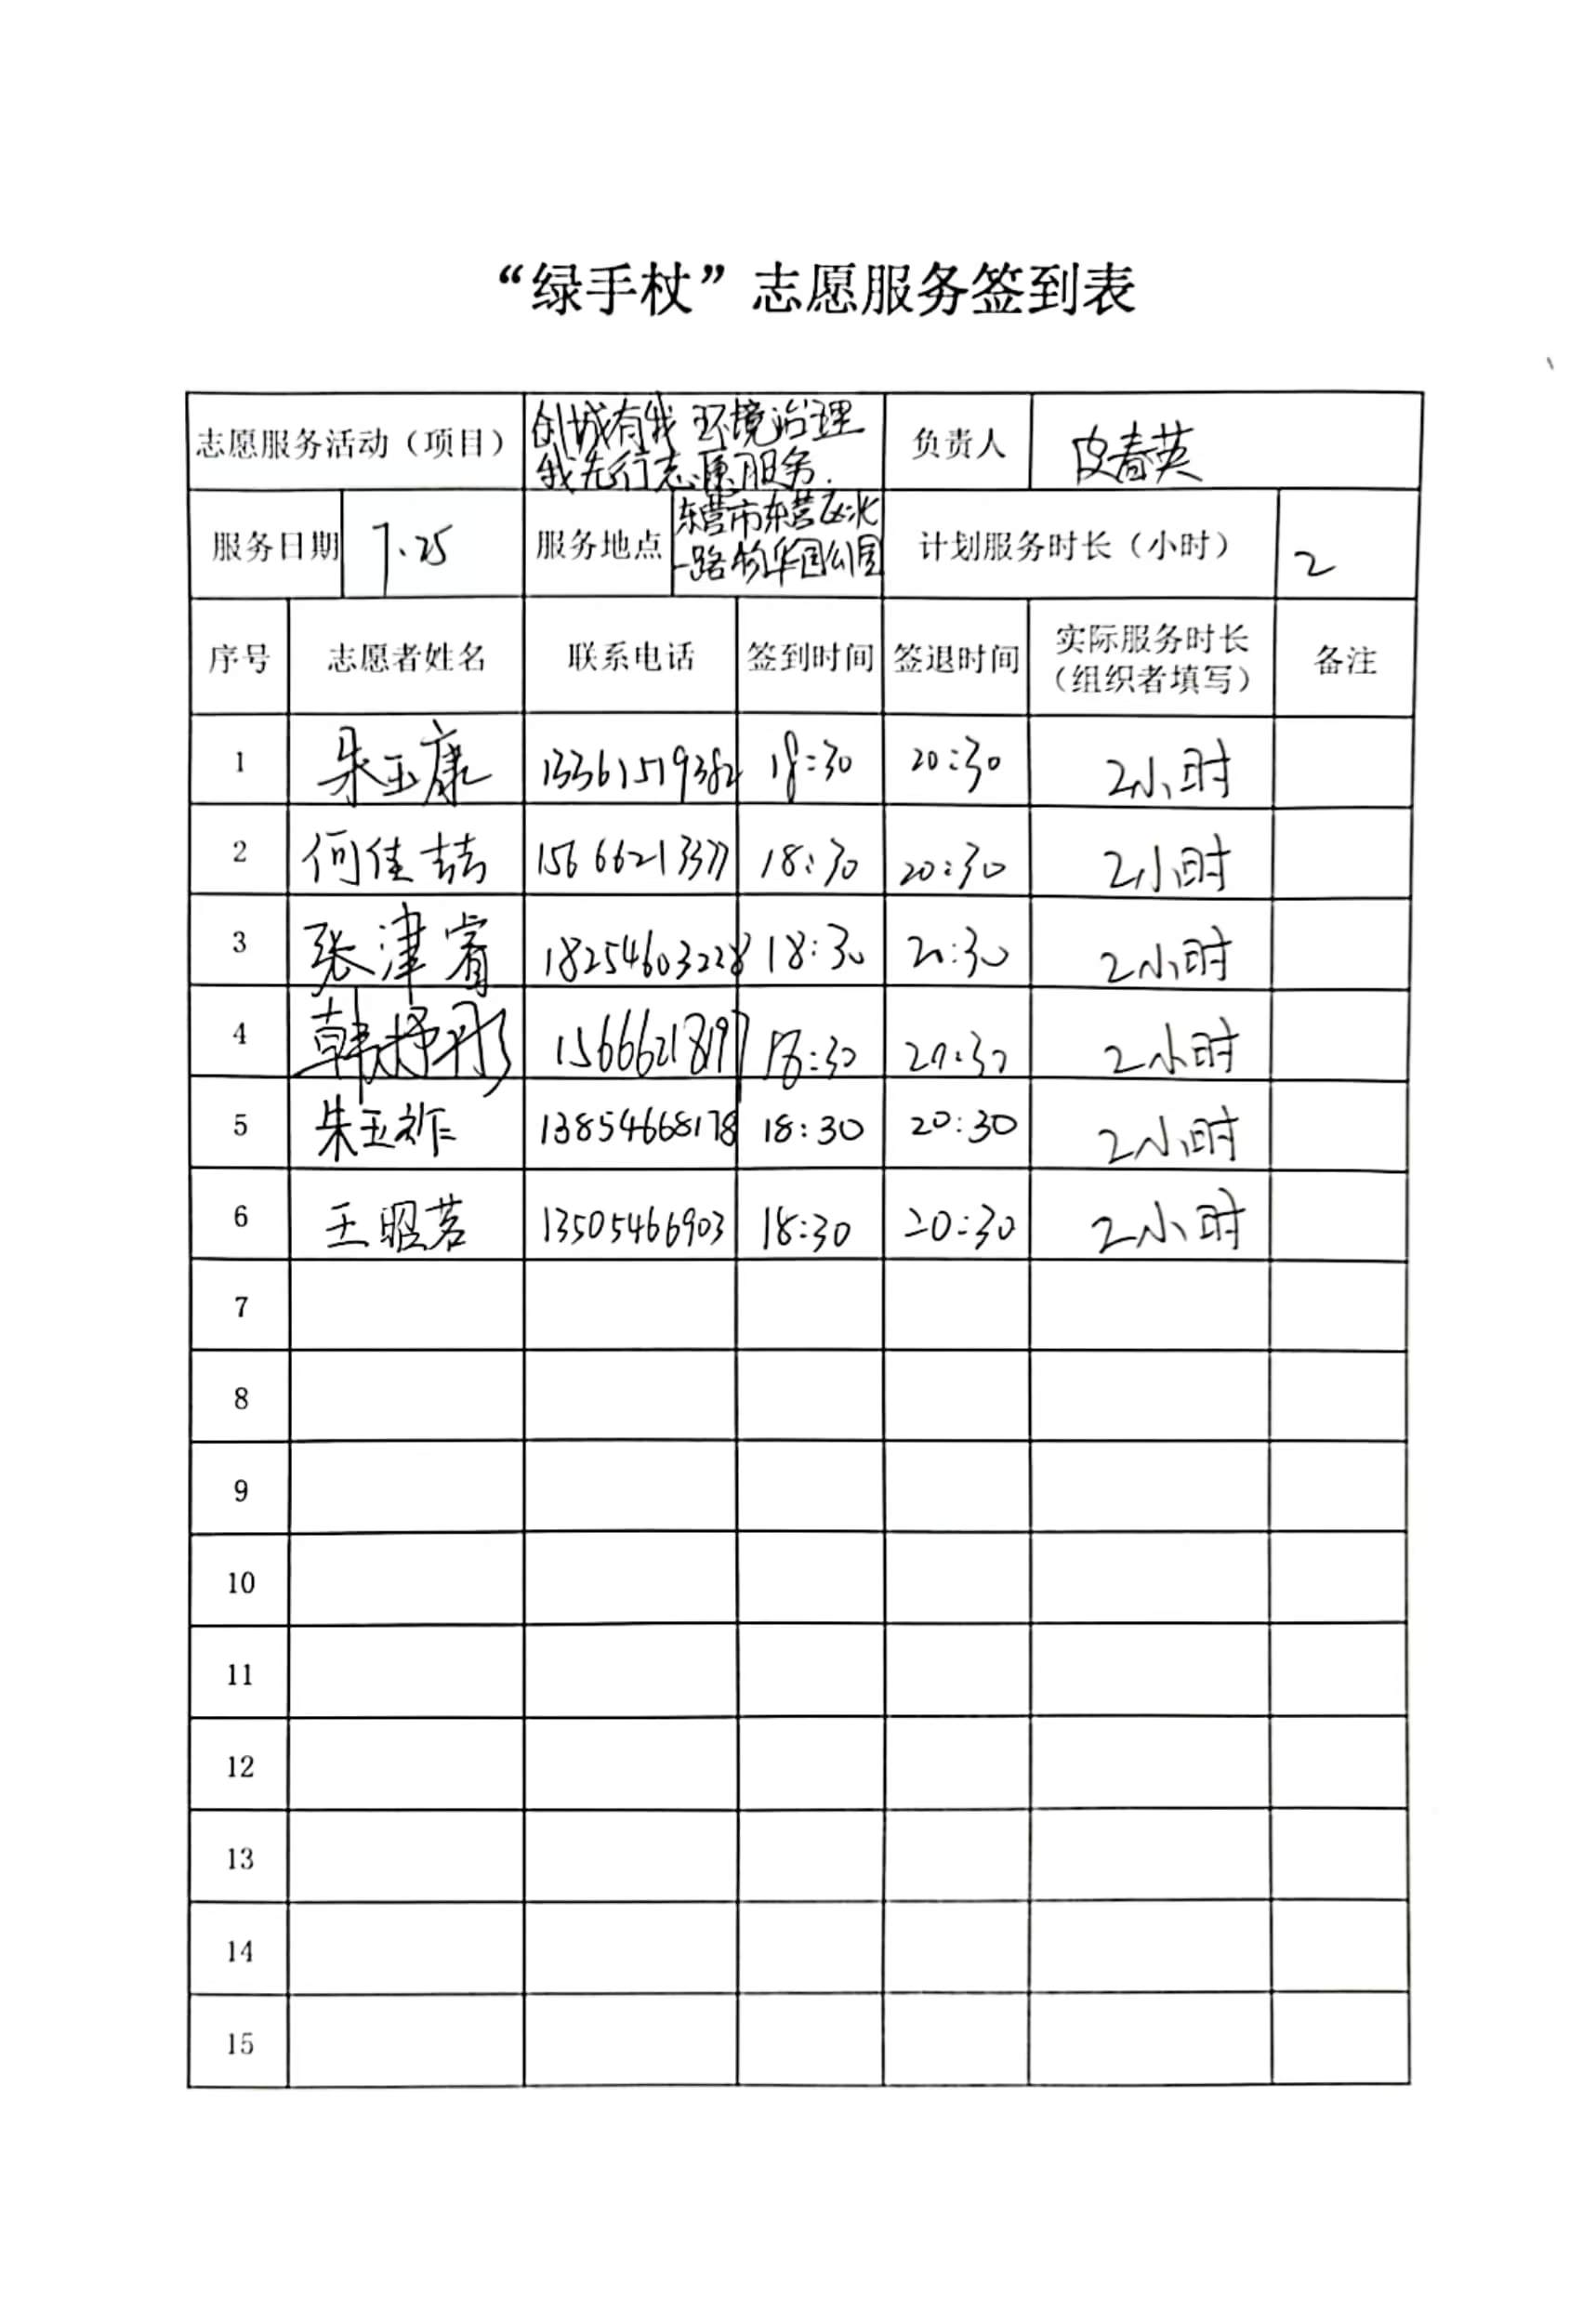 “绿手杖”志愿服务签到表
志愿服务活动（项目） 创城有我 环境治理 负责人 皮春英
我先行志愿服务.
服务日期 7.25 服务地点 东营市东营区北 计划服务时长（小时） 2
一路物华园公园
序号 志愿者姓名 联系电话 签到时间 签退时间 实际服务时长 备注
（组织者填写）
1 朱玉康 13361519382 18:30 20:30 2小时
2 何佳喆 15666213377 18:30 20:30 2小时
3 张津睿 18254603228 18:30 20:30 2小时
4 韩抒彤 15666218197 18:30 20:30 2小时
5 朱玉祚 13854668178 18:30 20:30 2小时
6 王昭茗 13505466903 18:30 20:30 2小时
7
8
9
10
11
12
13
14
15